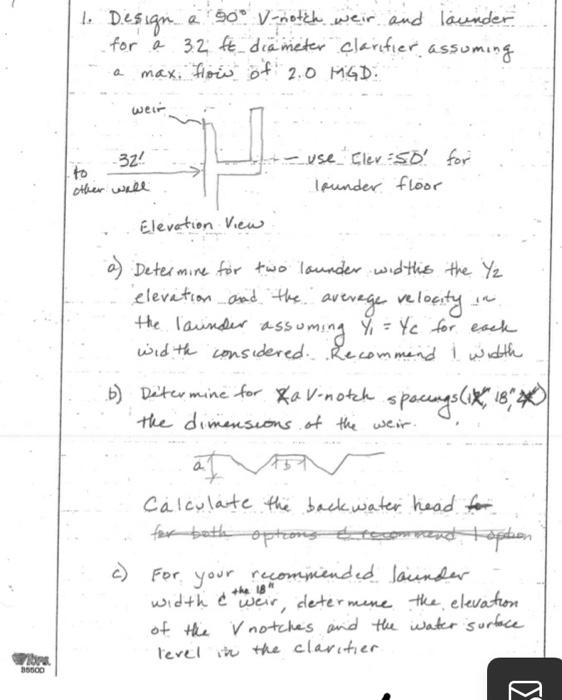 1. Design a 90° V-notch weir and launder
for a 32 ft diameter clarifier assuming
a max. flow of 2.0 MGD.
weir
32'
to
other wall
use Elev = 50' for
launder floor
Elevation View
a) Determine for two launder widths the Y2
elevation and the average velocity in
the launder assuming Y1 = Yc for each
width considered. Recommend 1 width
b) Determine for a V-notch spacings (12", 18", 24")
the dimensions of the weir.
a
b
Calculate the backwater head for
for both options & recommend 1 option
c) For your recommended launder
width & the 18" weir, determine the elevation
of the V notches and the water surface
level in the clarifier
TOPS
35500